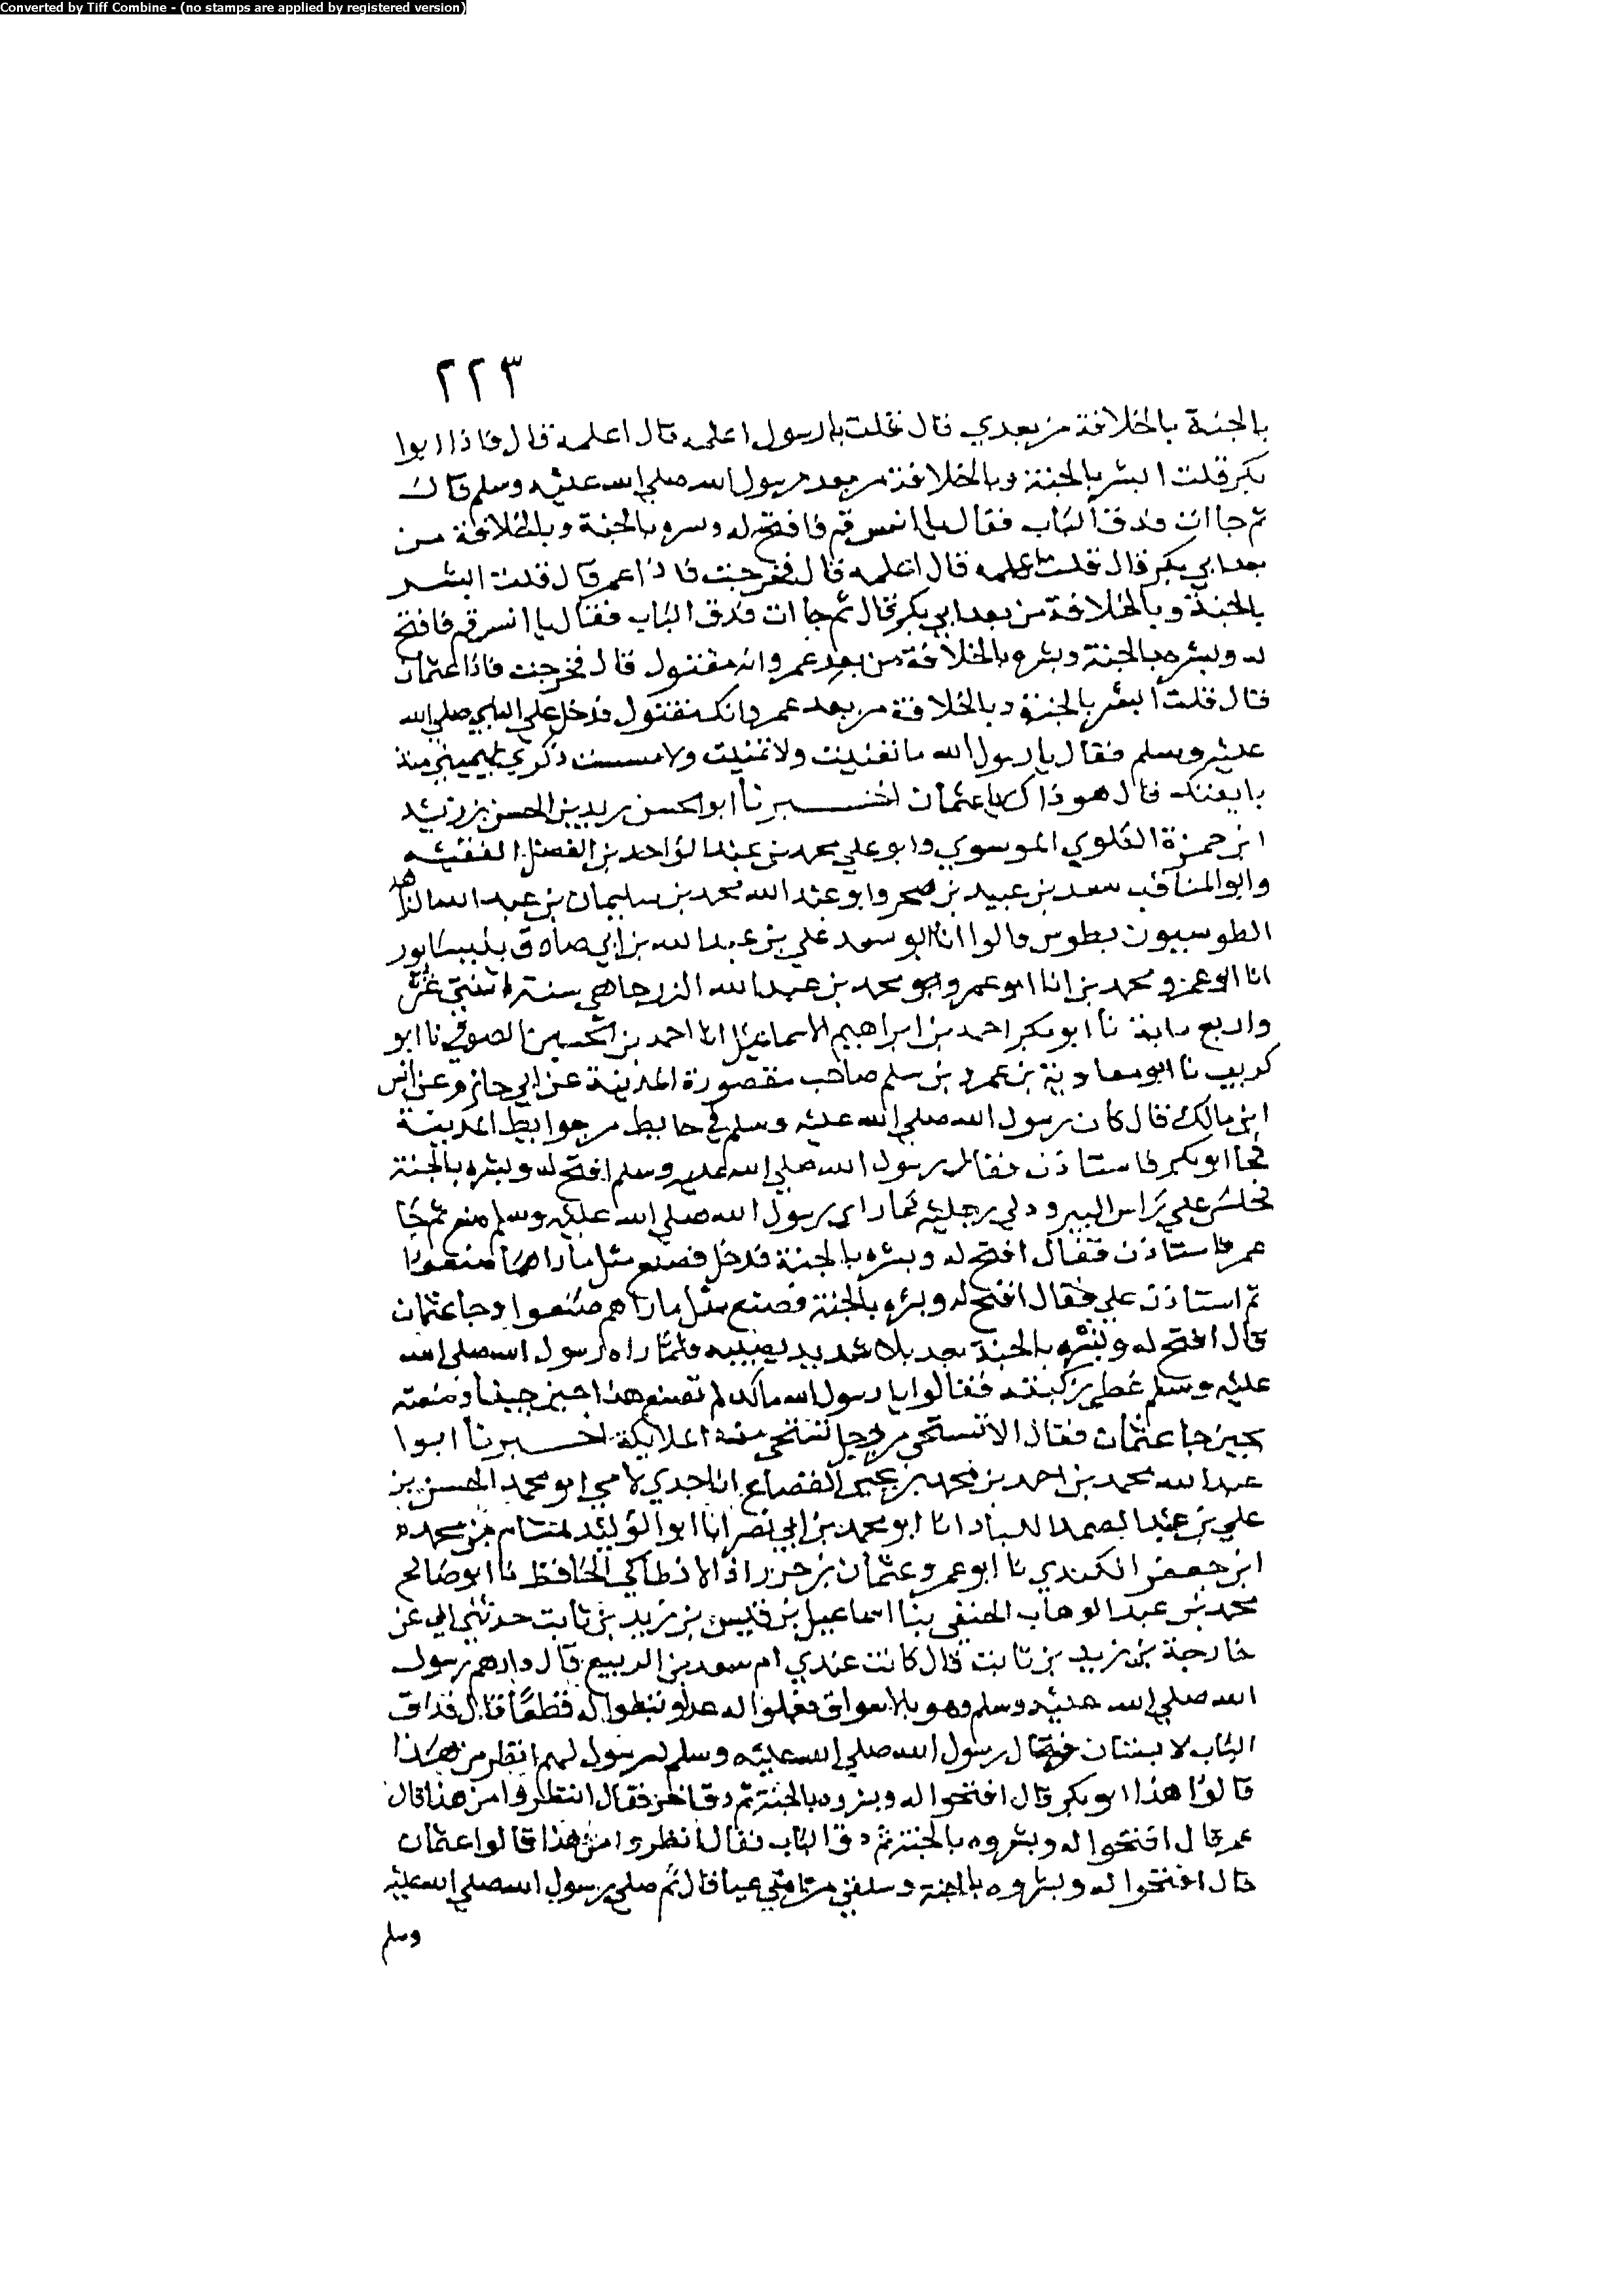 Converted by Tiff Combine - (no stamps are applied by registered version)
٢٢٣
بالجنة بالخلافة من بعدي قال فقلت يا رسول اعلمه قال اعلمه قال فاذا ابوا
بكر قلت ابشر بالجنة وبالخلافة من بعد رسول الله صلى الله عليه وسلم قال
ثم جا ات فدق الباب فقال يا انس قم فافتح له وبشره بالجنة وبالخلافة من
بعد ابي بكر قال قلت اعلمه قال اعلمه قال فخرجت فاذا عمر قال قلت ابشر
بالجنة وبالخلافة من بعد ابي بكر قال ثم جا ات فدق الباب فقال يا انس قم فافتح
له وبشره بالجنة وبشره بالخلافة من بعد عمر وانه مقتول قال فخرجت فاذا عثمان
قال قلت ابشر بالجنة وبالخلافة من بعد عمر وانك مقتول فدخل على النبي صلى الله
عليه وسلم فقال يا رسول الله ما تغنيت ولا تمنيت ولا مسست ذكري بيميني منذ
بايعتك قال هو ذاك يا عثمان اخبرنا ابو الحسن بن الحسن بن
ابن حمزة العلوي الموسوي وابو علي محمد بن عبد الواحد بن الفضل الفقيه
وابو المناقب سعد بن عبيد بن صخر وابو عبد الله محمد بن سليمان بن عبد الله
الطوسيون بطوس قالوا انا ابو سعد علي بن عبد الله بن ابي صادق بنيسابور
انا ابو عمرو محمد بن انا ابو عمرو محمد بن عبد الله الزرجاهي سنة اثنتي عشرة
واربع ماية نا ابو بكر احمد بن ابراهيم الاسماعيلي انا احمد بن الحسين الصوفي نا ابو
كريب نا ابو معاوية بن عمرو بن سلم صاحب مقصورة المدينة عن ابي حازم وعن انس
ابن مالك قال كان رسول الله صلى الله عليه وسلم في حايط من حوايط المدينة
فجا ابو بكر فاستاذن فقال رسول الله صلى الله عليه وسلم افتح له وبشره بالجنة
فجلس علي راس البير ودلى رجليه كما راى رسول الله صلى الله عليه وسلم صنع ثم جا
عمر فاستاذن فقال افتح له وبشره بالجنة فدخل فصنع مثل ما راهما صنعوا
ثم استاذن علي فقال افتح له وبشره بالجنة فصنع مثل ما راهم صنعوا وجا عثمان
قال افتح له وبشره بالجنة بعد بلاء شديد يصيبه فلما راه رسول الله صلى الله
عليه وسلم غطى ركبته فقالوا يا رسول الله مالك لم تصنع هذا حين جينا وصنعته
حين جا عثمان فقال الا نستحي من رجل تستحي منه الملايكة اخبرنا ابوا
عبد الله محمد بن احمد بن محمد بن القصاع انا جدي لامي ابو محمد الحسن بن
علي بن عبد الصمد اللباد انا ابو محمد بن ابي نصر انا ابو الوليد هشام بن محمد
ابن جعفر الكندي نا ابو عمرو عثمان بن خرزاذ الانطاكي الحافظ نا ابو صالح
محمد بن عبد الوهاب الحنفي بنا اسماعيل بن قيس بن زيد بن ثابت حدثني ابي عن
خارجة بن زيد بن ثابت قال كانت عندي ام سعد بن الربيع قال زارهم رسول
الله صلى الله عليه وسلم وهو بالاسواق فعملوا له قال فدق
الباب لا بستان فقال رسول الله صلى الله عليه وسلم لرسول لهم انظر من هذا
قالوا هذا ابو بكر قال افتحوا له وبشروه بالجنة ثم دق اخر فقال انظروا من هذا قال
عمر قال افتحوا له وبشروه بالجنة ثم دق الباب فقال انظروا من هذا قالوا عثمان
قال افتحوا له وبشروه بالجنة قال ثم صلى رسول الله صلى الله عليه
وسلم